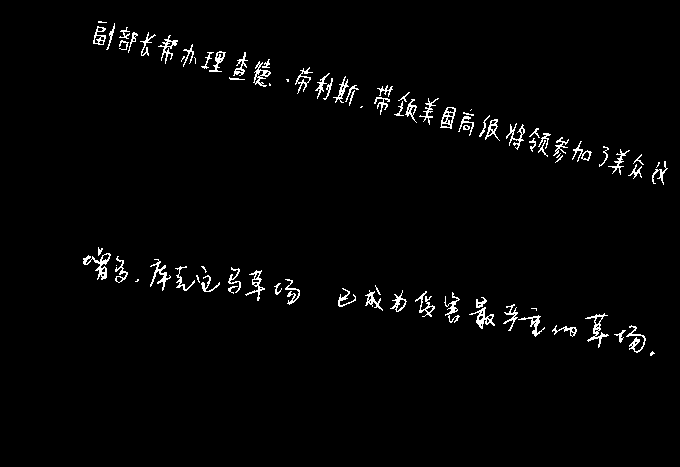 副部长帮办理查德·劳利斯,带领美国高级将领参加了美众议
增多,库克这马草场 已成为伤害最严重的草场.